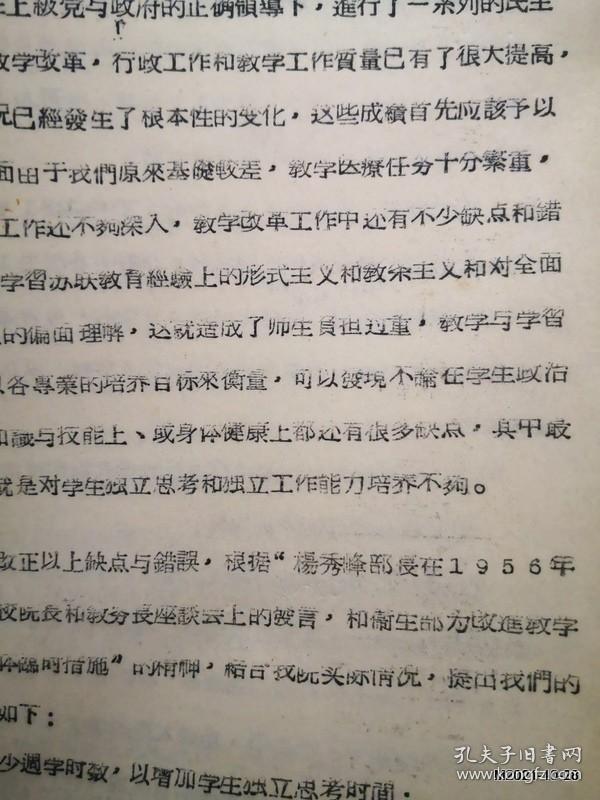 上級党与政府的正确領導下，進行了一系列的民主
教学改革，行政工作和教学工作質量已有了很大提高，
况已經發生了根本性的变化，这些成績首先应該予以
面由于我們原來基礎較差，教学医療任务十分繁重，
工作还不夠深入，教学改革工作中还有不少缺点和錯
学習苏联教育經驗上的形式主义和教条主义和对全面
的偏面理解，这就造成了师生負担过重，教学与学習
各專業的培养目标來衡量，可以發現不論在学生政治
知識与技能上、或身体健康上都还有很多缺点，其中最
就是对学生独立思考和独立工作能力培养不夠。
改正以上缺点与錯誤，根据“楊秀峰部長在1956年
校院長和教务長座談会上的發言，和衞生部为改進教学
体臨时措施”的精神，結合我院实际情况，提出我們的
如下：
少週学时数，以增加学生独立思考时間．
孔夫子旧书网
kongfz.com